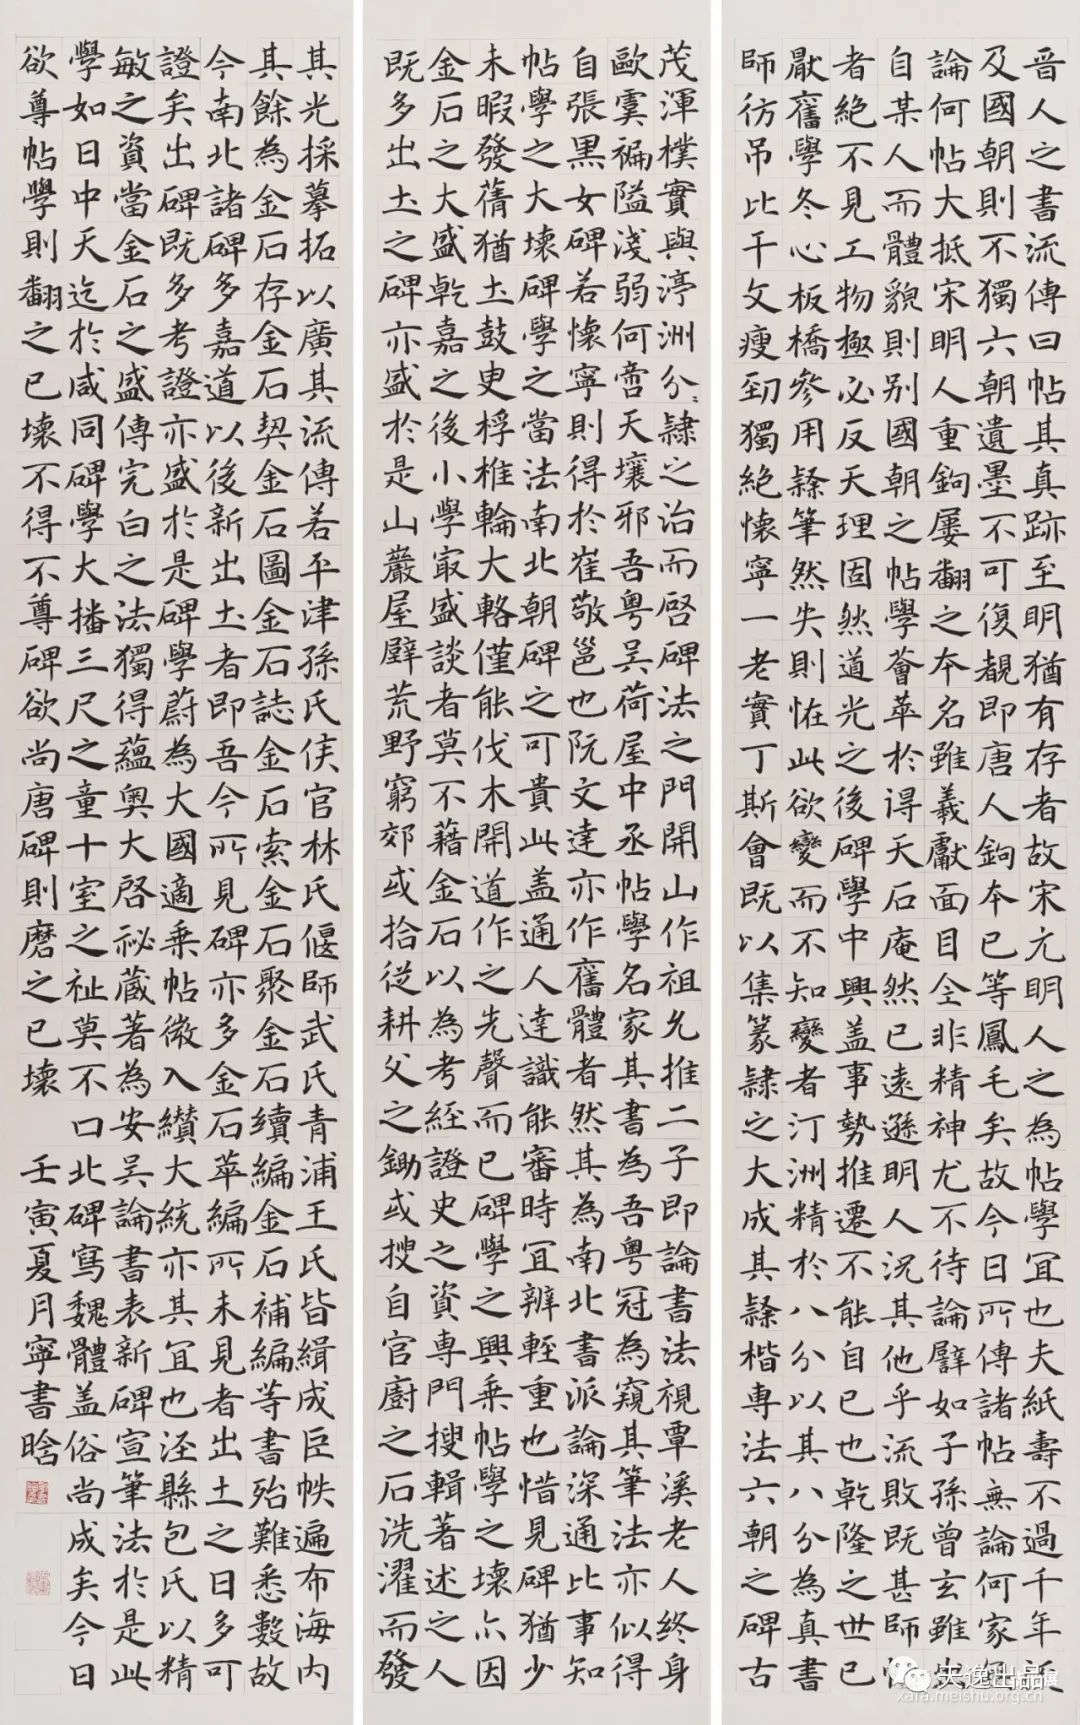 晉人之書流傳曰帖其真跡至明猶有存者故宋元明人之為帖學宜也夫紙壽不過千年
及國朝則不獨六朝遺墨不可復覩即唐人鉤本已等鳳毛矣故今日所傳諸帖無論何家
論何帖大抵宋明人重鉤屢翻之本名雖羲獻面目全非精神尤不待論譬如子孫曾玄雖
自某人而體貌則別國朝之帖學薈萃於得天石庵然已遠遜明人況其他乎流敗既甚師
者絕不見工物極必反天理固然道光之後碑學中興蓋事勢推遷不能自已也乾隆之世已
厭舊學冬心板橋參用隸筆然失則怪此欲變而不知變者汀洲精於八分以其八分為真書
師仿吊比干文瘦劲獨絕懷寧一老實丁斯會既以集篆隸之大成其隸楷專法六朝之碑古
茂渾樸實與渟洲分隸之治而啓碑法之門開山作祖允推二子即論書法視覃溪老人終身
歐虞褊隘淺弱何啻天壤邪吾粵吳荷屋中丞帖學名家其書為吾粵冠為窺其筆法亦似得
自張黑女碑若懷寧則得於崔敬邕也阮文達亦作舊體者然其為南北書派論深通此事知
帖學之大壞碑學之當法南北朝碑之可貴此蓋通人達識能審時宜辨輊重也惜見碑猶少
未暇發蒨猶土鼓吏桴椎輪大輅僅能伐木開道作之先聲而已碑學之興乘帖學之壞亦因
金石之大盛乾嘉之後小學最盛談者莫不藉金石以為考經證史之資專門搜輯著述之人
既多出土之碑亦盛於是山巖屋壁荒野窮郊或拾從耕父之鋤或搜自官廚之石洗濯而發
其光採摹拓以廣其流傳若平津孫氏侯官林氏偃師武氏青浦王氏皆緝成巨帙遍布海內
其餘為金石存金石契金石圖金石誌金石索金石聚金石續編金石補編等書殆難悉數故
今南北諸碑多嘉道以後新出土者即吾今所見碑亦多金石萃編所未見者出土之日多可
證矣出碑既多考證亦盛於是碑學蔚為大國適乘帖微入纘大統亦其宜也涇縣包氏以精
敏之資當金石之盛傳完白之法獨得蘊奧大啓祕藏著為安吳論書表新碑宣筆法於是此
學如日中天迄於咸同碑學大播三尺之童十室之社莫不口北碑寫魏體蓋俗尚成矣今日
欲尊帖學則翻之已壞不得不尊碑欲尚唐碑則磨之已壞
壬寅夏月寧書晗
天逸出品
xara.meishu.org.cn